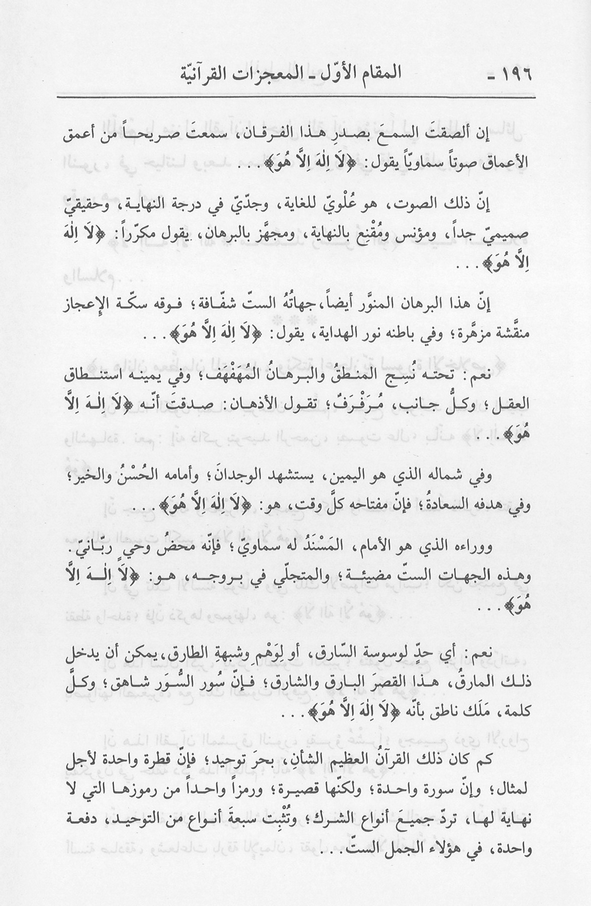 ١٩٦ - المقام الأوّل - المعجزات القرآنيّة
إن ألصقتَ السمعَ بصدرِ هذا الفرقان، سمعتَ صريحاً من أعمق
الأعماق صوتاً سماويّاً يقول: ﴿لَا اِلٰهَ اِلَّا هُوَ﴾...
إنّ ذلك الصوت، هو عُلْويّ للغاية، وجدّيّ في درجة النهاية، وحقيقيّ
صميميّ جداً، ومؤنس ومُقْنِع بالنهاية، ومجهَّز بالبرهان، يقول مكرّراً: ﴿لَا اِلٰهَ
اِلَّا هُوَ﴾...
إنّ هذا البرهان المنوَّر أيضاً، جهاتُهُ الستّ شفّافة؛ فوقه سكّة الإعجاز
منقَّشة مزهَّرة؛ وفي باطنه نور الهداية، يقول: ﴿لَا اِلٰهَ اِلَّا هُوَ﴾...
نعم: تحته نُسِج المنطقُ والبرهانُ المُهَفْهَف؛ وفي يمينه استنطاق
العقل؛ وكلُّ جانب، مُرَفْرَفٌ؛ تقول الأذهان: صدقتَ أنّه ﴿لَا اِلٰهَ اِلَّا
هُوَ﴾...
وفي شماله الذي هو اليمين، يستشهد الوجدانَ؛ وأمامه الحُسْنُ والخير؛
وفي هدفه السعادةُ؛ فإنّ مفتاحه كلَّ وقت، هو: ﴿لَا اِلٰهَ اِلَّا هُوَ﴾...
ووراءه الذي هو الأمام، المَسْنَدُ له سماويّ؛ فإنّه محضُ وحيٍ ربّانيّ.
وهذه الجهات الستّ مضيئة؛ والمتجلّي في بروجه، هو: ﴿لَا اِلٰهَ اِلَّا
هُوَ﴾...
نعم: أي حدٍّ لوسوسة السّارق، أو لِوَهْمِ وشبهةِ الطارق، يمكن أن يدخل
ذلك المارقُ، هذا القصرَ البارق والشارق؛ فإنّ سُور السُّوَر شاهق؛ وكلّ
كلمة، مَلَك ناطق بأنّه ﴿لَا اِلٰهَ اِلَّا هُوَ﴾...
كم كان ذلك القرآنُ العظيم الشأنِ، بحرَ توحيد؛ فإنّ قطرة واحدة لأجل
لمثال؛ وإنّ سورة واحدة؛ ولكنّها قصيرة؛ ورمزاً واحداً من رموزها التي لا
نهاية لها، تردّ جميعَ أنواع الشرك؛ وتُثْبِت سبعةَ أنواع من التوحيد، دفعة
واحدة، في هؤلاء الجمل الستّ...